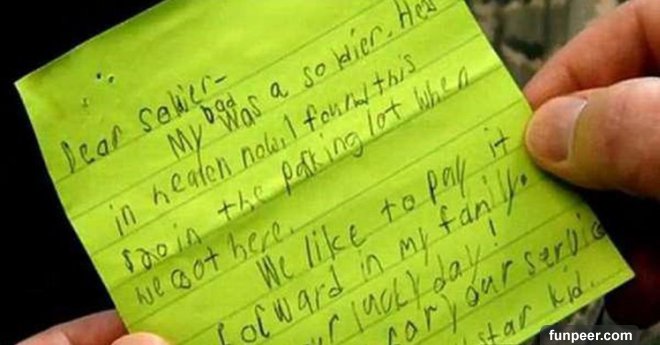 Dear soldier-
My dad was a soldier. He's
in heaven now. I found this
$20 in the parking lot when
we got here.
We like to pay it
forward in my family.
lucky day!
for your service
star kid.
funpeer.com